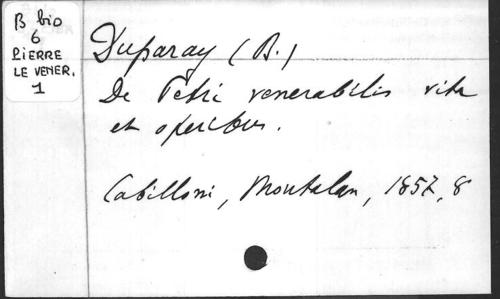 B bio
6
PIERRE
LE VENER.
1
Duparay (B.)
De Petri venerabilis vita
et operibus.
Cabilloni, Montalan, 1857, 8